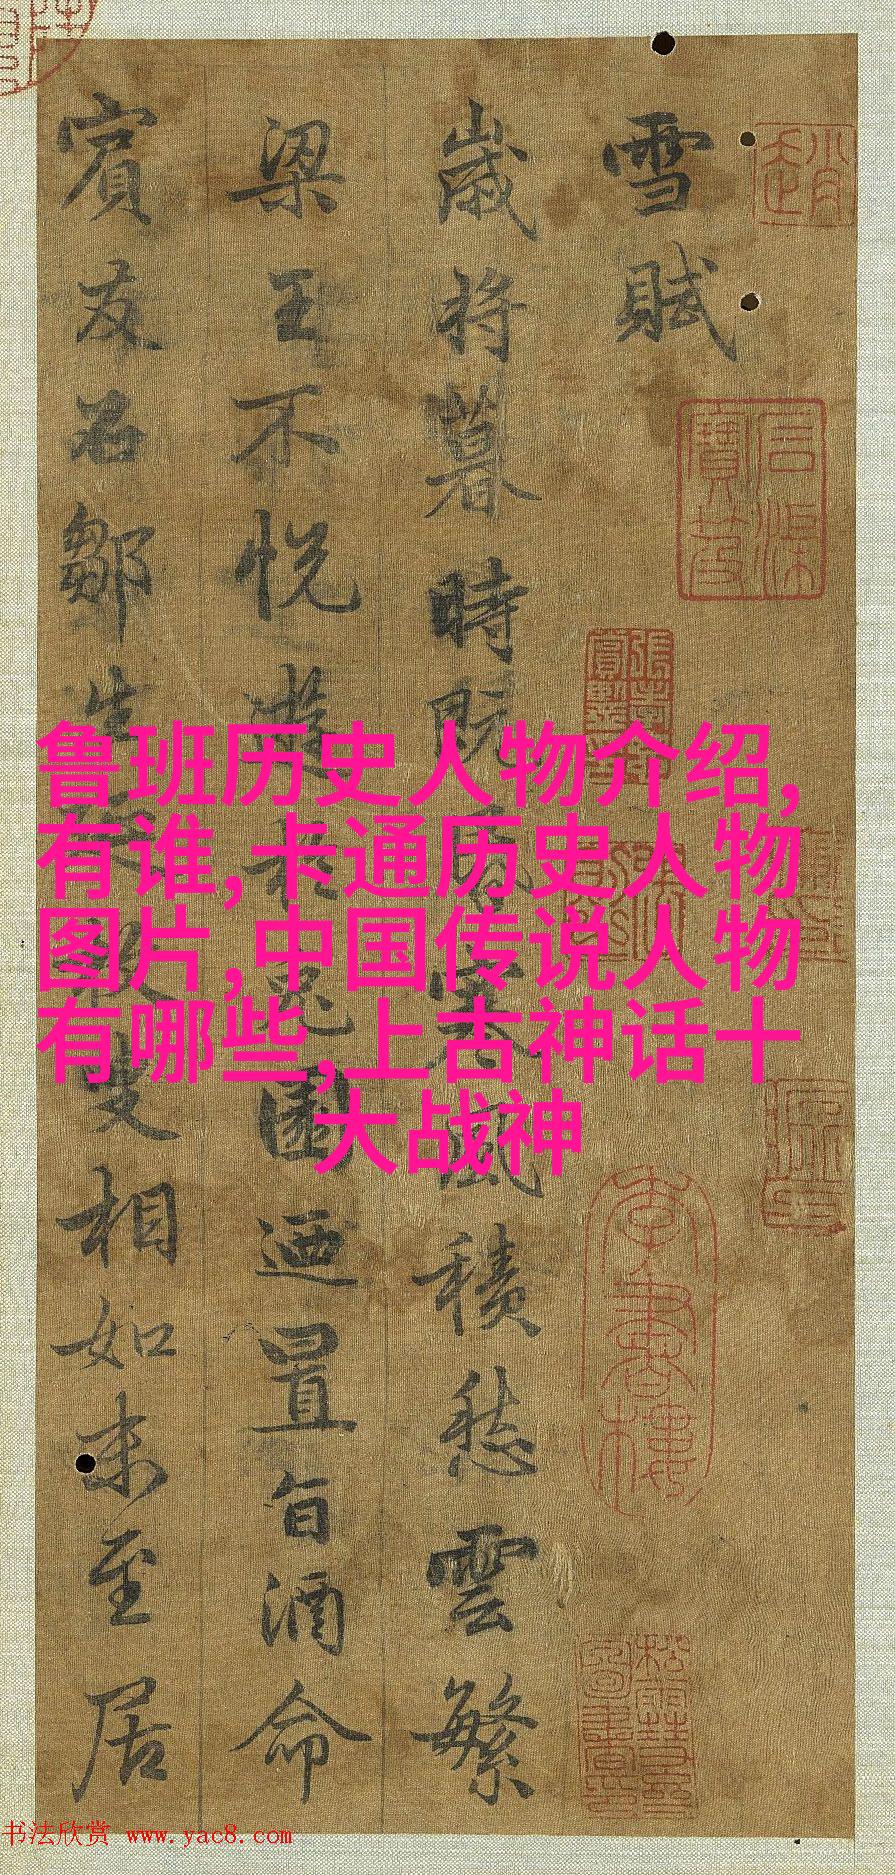 雪賦
歲將暮時既昏寒風積愁雲繁
梁王不悅遊於兔園迺置旨酒命
賓友召鄒生延枚叟相如末至居
鲁班历史人物介绍,
有谁,卡通历史人物
图片,中国传说人物
有哪些,上古神话十
大战神
书法欣赏 www.yac8.com